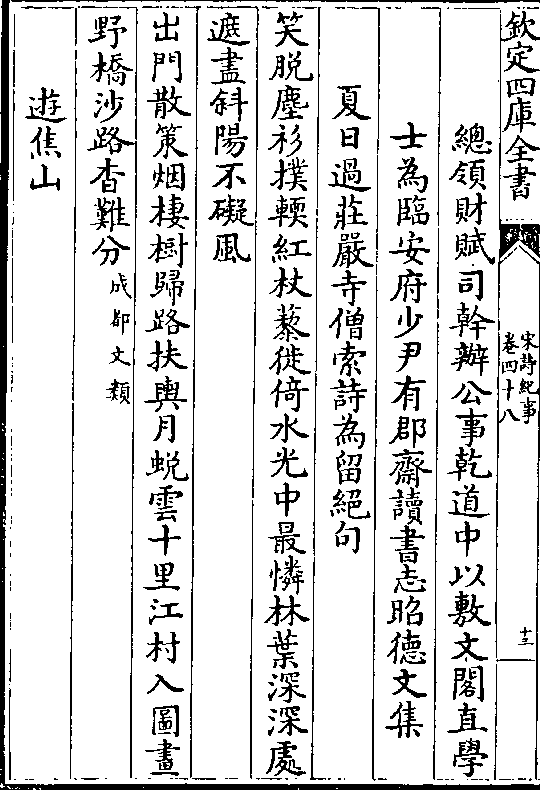 欽定四庫全書
宋詩紀事
卷四十八
十三
總領財賦司幹辦公事乾道中以敷文閣直學
士為臨安府少尹有郡齋讀書志昭德文集
夏日過莊嚴寺僧索詩為留絕句
笑脱塵衫撲輭紅杖藜徙倚水光中最憐林葉深深處
遮盡斜陽不礙風
出門散策烟棲樹歸路扶輿月蜕雲十里江村入圖畫
野橋沙路杳難分成都文類
遊焦山